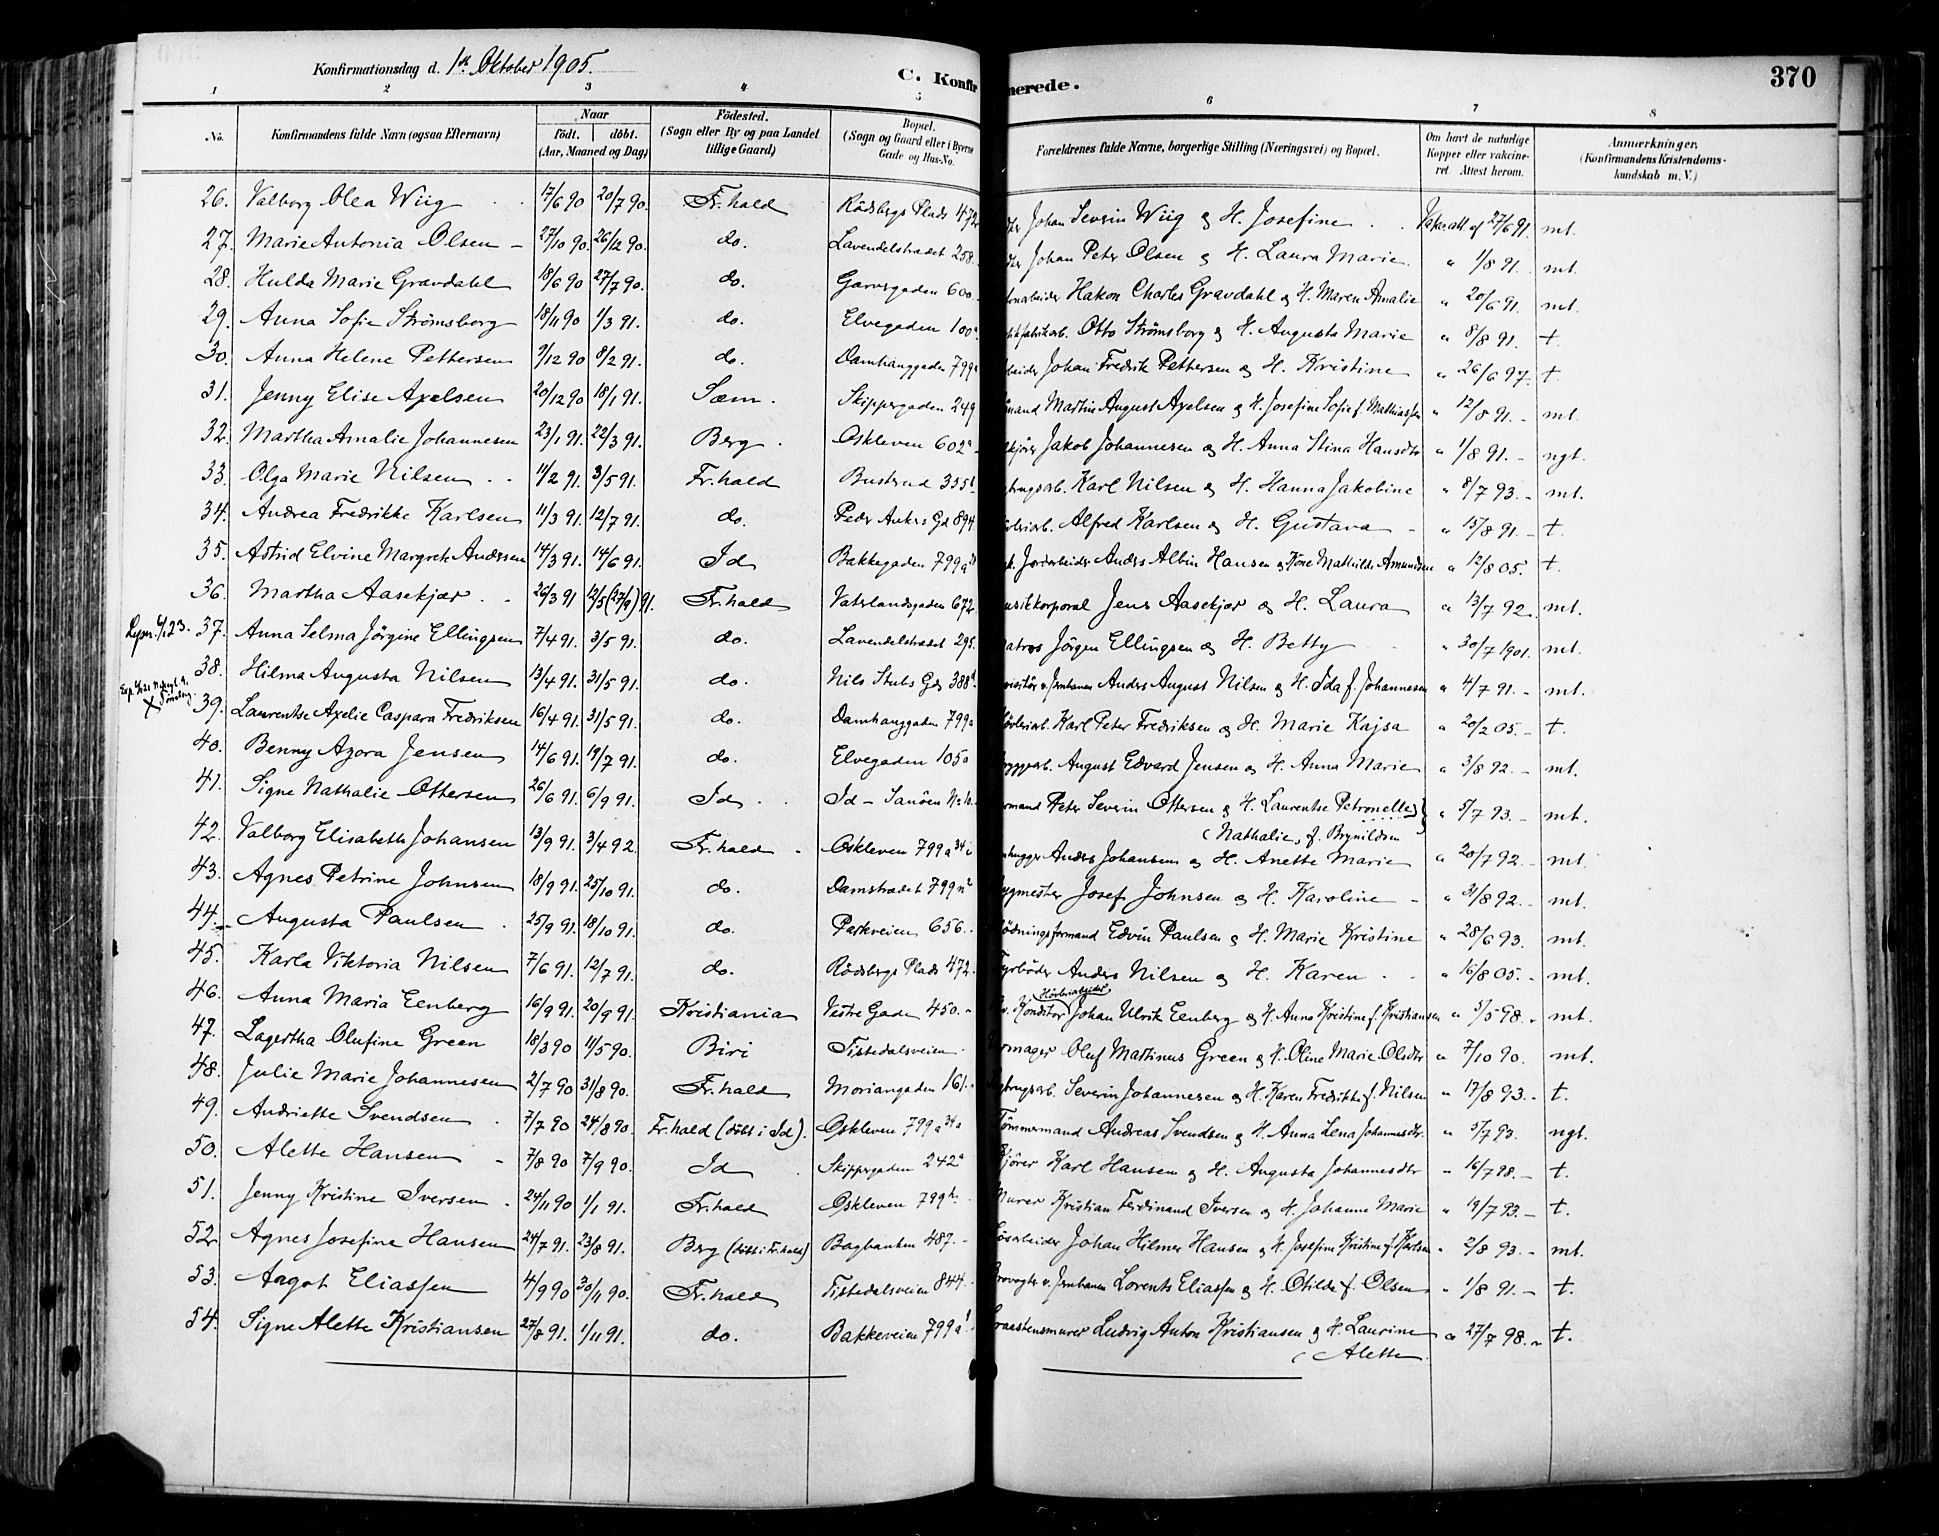 Konfirmationsdag d. 1ste Oktober 1905.
C. Konfir merede. 370
1 2 3 4 5 6 7 8
No. Konfirmandens fulde Navn (ogsaa Efternavn) Naar födt. döbt. (Aar, Maaned og Dag) Födested. (Sogn eller By og paa Landet tillige Gaard) Bopæl. (Sogn og Gaard eller i Byerne Gade og Hus-No. Forældrenes fulde Navne, borgerlige Stilling (Næringsvei) og Bopæl. Om havt de naturlige Kopper eller vakcineret. Attest herom. Anmærkninger. (Konfirmandens Kristendomskundskab m. V.)
26. Valborg Olea Wiig 17/6 90 20/7 90. Fr.hald Rödsbergs Plads 472 Johan Severin Wiig og H. Josefine Vakc.att. af 27/6 91. mt.
27. Marie Antonia Olsen 27/10 90 26/12 90. do. Lavendelstrædet 258. Johan Peter Olsen og H. Laura Marie " 1/8 91. mt.
28. Hulda Marie Gravdahl 18/6 90 27/7 90. do. Garvergaden 600. Hakon Charles Gravdahl og H. Maren Amalie " 20/6 91. mt.
29. Anna Sofie Strömsborg 18/11 90 1/3 91. do. Elvegaden 100a Otto Strömsborg og H. Augusta Marie " 8/8 91. t.
30. Anna Helene Pettersen 9/12 90 8/2 91. do. Damhauggaden 799a beider Johan Fredrik Pettersen og H. Kristine " 26/6 97. t.
31. Jenny Elise Axelsen 20/12 90 18/1 91. Sæm. Skippergaden 249 mand Martin August Axelsen og H. Josefine Sofie f. Mathiassen " 12/8 91. mt.
32. Martha Amalie Johannesen 23/1 91. 22/3 91. Berg. Oskleven 602a kjörer Jakob Johannesen og H. Anna Stina Hansdtr " 1/8 91. ngt.
33. Olga Marie Nilsen 11/2 91. 3/5 91. Fr.hald Busterud 355b brugsarb. Karl Nilsen og H. Hanna Jakobine " 8/7 93. mt.
34. Andrea Fredrikke Karlsen 11/3 91. 12/7 91. do. Peder Ankers Gd 894 Alfred Karlsen og H. Gustava " 15/8 91. t.
35. Astrid Elvine Margreth Andersen 14/3 91. 14/6 91. Id Bakkegaden 799a Jordarbeider Anders Albin Hansen og Kone Mathilde Amundsen " 12/8 05. t.
36. Martha Aasekjær 26/3 91 12/5 (27/9) 91. Fr.hald Vaterlandsgaden 672. usikkorporal Jens Aasekjær og H. Laura " 13/7 92. mt.
37. Anna Selma Jörgine Ellingsen 7/4 91. 3/5 91. do. Lavendelstrædet 295. atros Jörgen Ellingsen og H. Betty " 30/7 1901. mt.
38. Hilma Augusta Nilsen 13/4 91. 31/5 91. do. Nils Stubs Gd. 388 visitör v. Jernbanen Anders August Nilsen og H. Ida f. Johannesen " 4/7 91. mt.
39. Laurentse Axelie Caspara Fredriksen 16/4 91. 31/5 91. do. Damhauggaden 799a Karl Peter Fredriksen og H. Marie Kajsa " 20/2 05. t.
40. Benny Azora Jensen 14/6 91. 19/7 91. do. Elvegaden 105a ryggearb. August Edvard Jensen og H. Anna Marie " 3/8 92. mt.
41. Signe Nathalie Ottersen 26/6 91. 6/9 91. Id Id - Sauöen rmand Peter Severin Ottersen og H. Laurentse Petronelle " 5/7 93. mt.
(Nathalie, f. Brynildsen
42. Valborg Elisabeth Johansen 13/9 91. 3/4 92. Fr.hald Oskleven 799a 34 hugger Anders Johansen og H. Anette Marie " 20/7 92. mt.
43. Agnes Petrine Johnsen 18/9 91. 25/10 91. do. Damstrædet 799 ygmester Josef Johnsen og H. Karoline " 31/8 92. mt.
44. Augusta Paulsen 25/9 91. 18/10 91. do. Parkveien 656. ödningsformand Edvin Paulsen og H. Marie Kristine " 28/6 93. mt.
45. Karla Viktoria Nilsen 7/6 91. 12/7 91. do. Rödsbergs Plads 472. Fyrböder Anders Nilsen og H. Karen " 16/8 05. mt.
46. Anna Maria Eenberg 16/9 91. 20/9 91. Kristiania Vestre Gaden 450. Konditor Johan Ulrik Eenberg og H. Anna Kristine f. Kristiansen " 5/5 98. mt.
47. Lagertha Olufine Green 18/3 90 11/5 90. Biri Tistedalsveien rmager Oluf Martinus Green og H. Oline Marie Olsdtr " 7/10 90. mt.
48. Julie Marie Johannesen 2/7 90 31/8 90. Fr.hald Moriangaden 161. brugsarb. Severin Johannesen og H. Karen Fredrikke f. Nilsen " 17/8 93. t.
49. Andriette Svendsen 7/7 90 24/8 90. Fr.hald (döbt i Id). Oskleven 799a 34a Tömmermand Andreas Svendsen og H. Anna Lena Johannesdtr. " 5/7 93. ngt.
50. Alette Hansen 7/8 90 7/9 90. Id Skippergaden 242a Kjörer Karl Hansen og H. Augusta Johannesdtr " 16/7 98. t.
51. Jenny Kristine Iversen 24/11 90 1/1 91. Fr.hald Oskleven 799h. Murer Kristian Ferdinand Iversen og H. Johanne Marie " 19/7 93. t.
52. Agnes Josefine Hansen 24/7 91. 23/8 91. Berg (döbt i Fr.hald) Bagbanken 487. ösarbeider Johan Hilmer Hansen og H. Josefine Kristine f. Karlsen " 2/8 93. mt.
53. Aagot Eliassen 4/9 90 30/11 90. Fr.hald Tistedalsveien 844. rovogter v. Jernbanen Lorents Eliassen og H. Otilde f. Olsen " 1/8 91. t.
54. Signe Alette Kristiansen 27/8 91. 1/11 91. do. Bakkeveien 799a raastensmurer Ludvig Anton Kristiansen og H. Laurine " 27/7 98. t.
(Alette